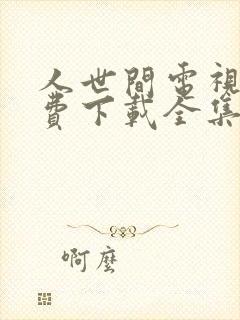 人世間電視
費下載全集
啊麼